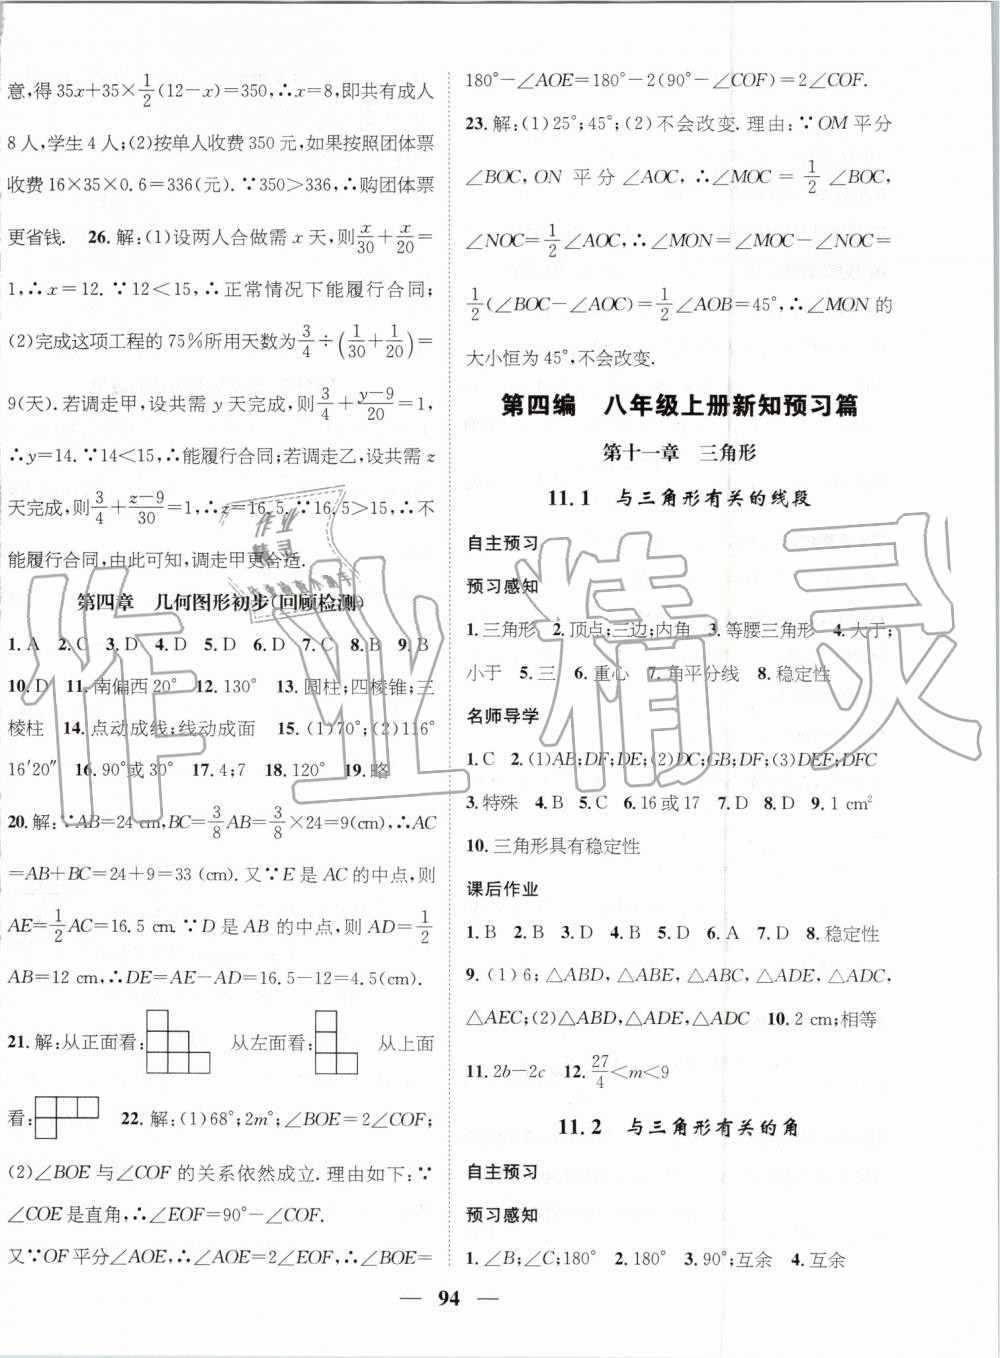 意,得35x+35×1/2(12-x)=350,∴x=8,即共有成人
8人,学生4人;(2)按单人收费350元,如果按照团体票
收费16×35×0.6=336(元).∵350>336,∴购团体票
更省钱. 26.解:(1)设两人合做需x天,则x/30+x/20=
1,∴x=12.∵12<15,∴正常情况下能履行合同;
(2)完成这项工程的75%所用天数为3/4÷(1/30+1/20)=
9(天).若调走甲,设共需y天完成,则3/4+(y-9)/20=1,
∴y=14.∵14<15,∴能履行合同;若调走乙,设共需z
天完成,则3/4+(z-9)/30=1,∴z=16.5.∵16.5>15,∴不
能履行合同,由此可知,调走甲更合适.
第四章 几何图形初步(回顾检测)
1.A 2.C 3.D 4.D 5.C 6.D 7.C 8.B 9.B
10.D 11.南偏西20° 12.130° 13.圆柱;四棱锥;三
棱柱 14.点动成线;线动成面 15.(1)70°;(2)116°
16′20″ 16.90°或30° 17.4;7 18.120° 19.略
20.解:∵AB=24 cm,BC=3/8AB=3/8×24=9(cm),∴AC
=AB+BC=24+9=33 (cm).又∵E是AC的中点,则
AE=1/2AC=16.5 cm.∵D是AB的中点,则AD=1/2
AB=12 cm,∴DE=AE-AD=16.5-12=4.5(cm).
21.解:从正面看: 从左面看: 从上面
看: 22.解:(1)68°;2m°;∠BOE=2∠COF;
(2)∠BOE与∠COF的关系依然成立.理由如下:∵
∠COE是直角,∴∠EOF=90°-∠COF.
又∵OF平分∠AOE,∴∠AOE=2∠EOF,∴∠BOE=
180°-∠AOE=180°-2(90°-∠COF)=2∠COF.
23.解:(1)25°;45°;(2)不会改变.理由:∵OM平分
∠BOC,ON平分∠AOC,∴∠MOC=1/2∠BOC,
∠NOC=1/2∠AOC,∴∠MON=∠MOC-∠NOC=
1/2(∠BOC-∠AOC)=1/2∠AOB=45°,∴∠MON的
大小恒为45°,不会改变.
第四编 八年级上册新知预习篇
第十一章 三角形
11.1 与三角形有关的线段
自主预习
预习感知
1.三角形 2.顶点;三边;内角 3.等腰三角形 4.大于;
小于 5.三 6.重心 7.角平分线 8.稳定性
名师导学
1.C 2.(1)AB;DF;DE;(2)DC;GB;DF;(3)DEF;DFC
3.特殊 4.B 5.C 6.16或17 7.D 8.D 9.1 cm²
10.三角形具有稳定性
课后作业
1.B 2.B 3.D 4.B 5.A 6.A 7.D 8.稳定性
9.(1)6;△ABD,△ABE,△ABC,△ADE,△ADC,
△AEC;(2)△ABD,△ADE,△ADC 10.2 cm;相等
11.2b-2c 12.27/4<m<9
11.2 与三角形有关的角
自主预习
预习感知
1.∠B;∠C;180° 2.180° 3.90°;互余 4.互余
94
作业精灵
作业
精灵